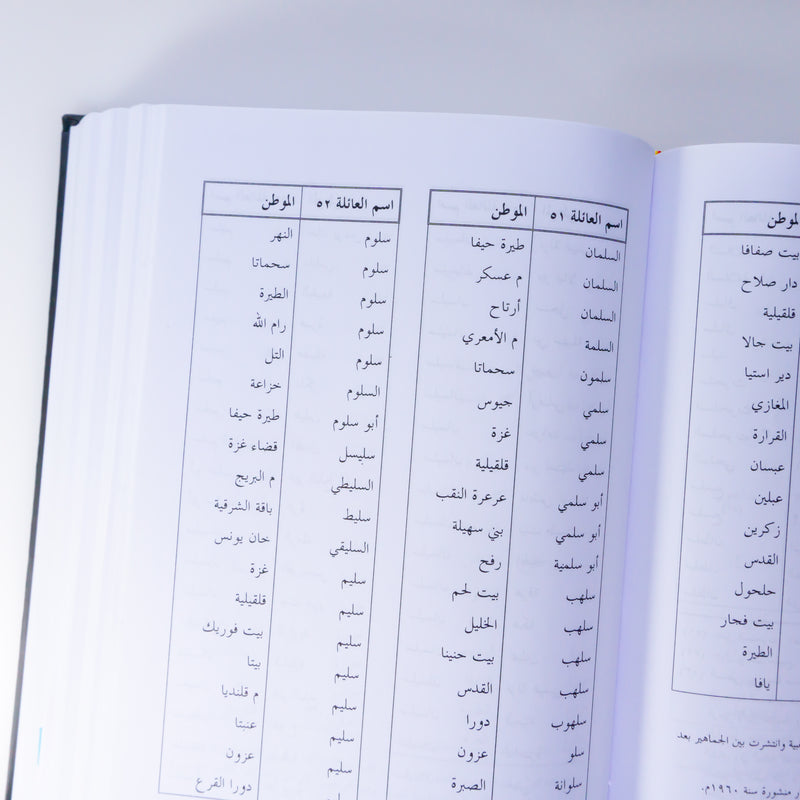 الموطن
بيت صفافا
دار صلاح
قلقيلية
بيت جالا
دير استيا
المغازي
القرارة
عبسان
عبلين
زكرين
القدس
حلحول
بيت فجار
الطيرة
يافا
وانتشرت بين الجماهير بعد
منشورة سنة ١٩٦٠م.
اسم العائلة ٥١ الموطن
السلمان طيرة حيفا
السلمان م عسكر
السلمان أرتاح
السلمة م الأمعري
سلمون سحماتا
سلمي جيوس
سلمي غزة
سلمي قلقيلية
أبو سلمي عرعرة النقب
أبو سلمي بني سهيلة
أبو سلمية رفح
سلهب بيت لحم
سلهب الخليل
سلهب بيت حنينا
سلهب القدس
سلهوب دورا
سلو عزون
سلوانة الصبرة
اسم العائلة ٥٢ الموطن
سلوم النهر
سلوم سحماتا
سلوم الطيرة
سلوم رام الله
سلوم التل
السلوم خزاعة
أبو سلوم طيرة حيفا
سليسل قضاء غزة
السليطي م البريج
سليط باقة الشرقية
السليقي خان يونس
سليم غزة
سليم قلقيلية
سليم بيت فوريك
سليم بيتا
سليم م قلنديا
سليم عنبتا
سليم عزون
دورا القرع